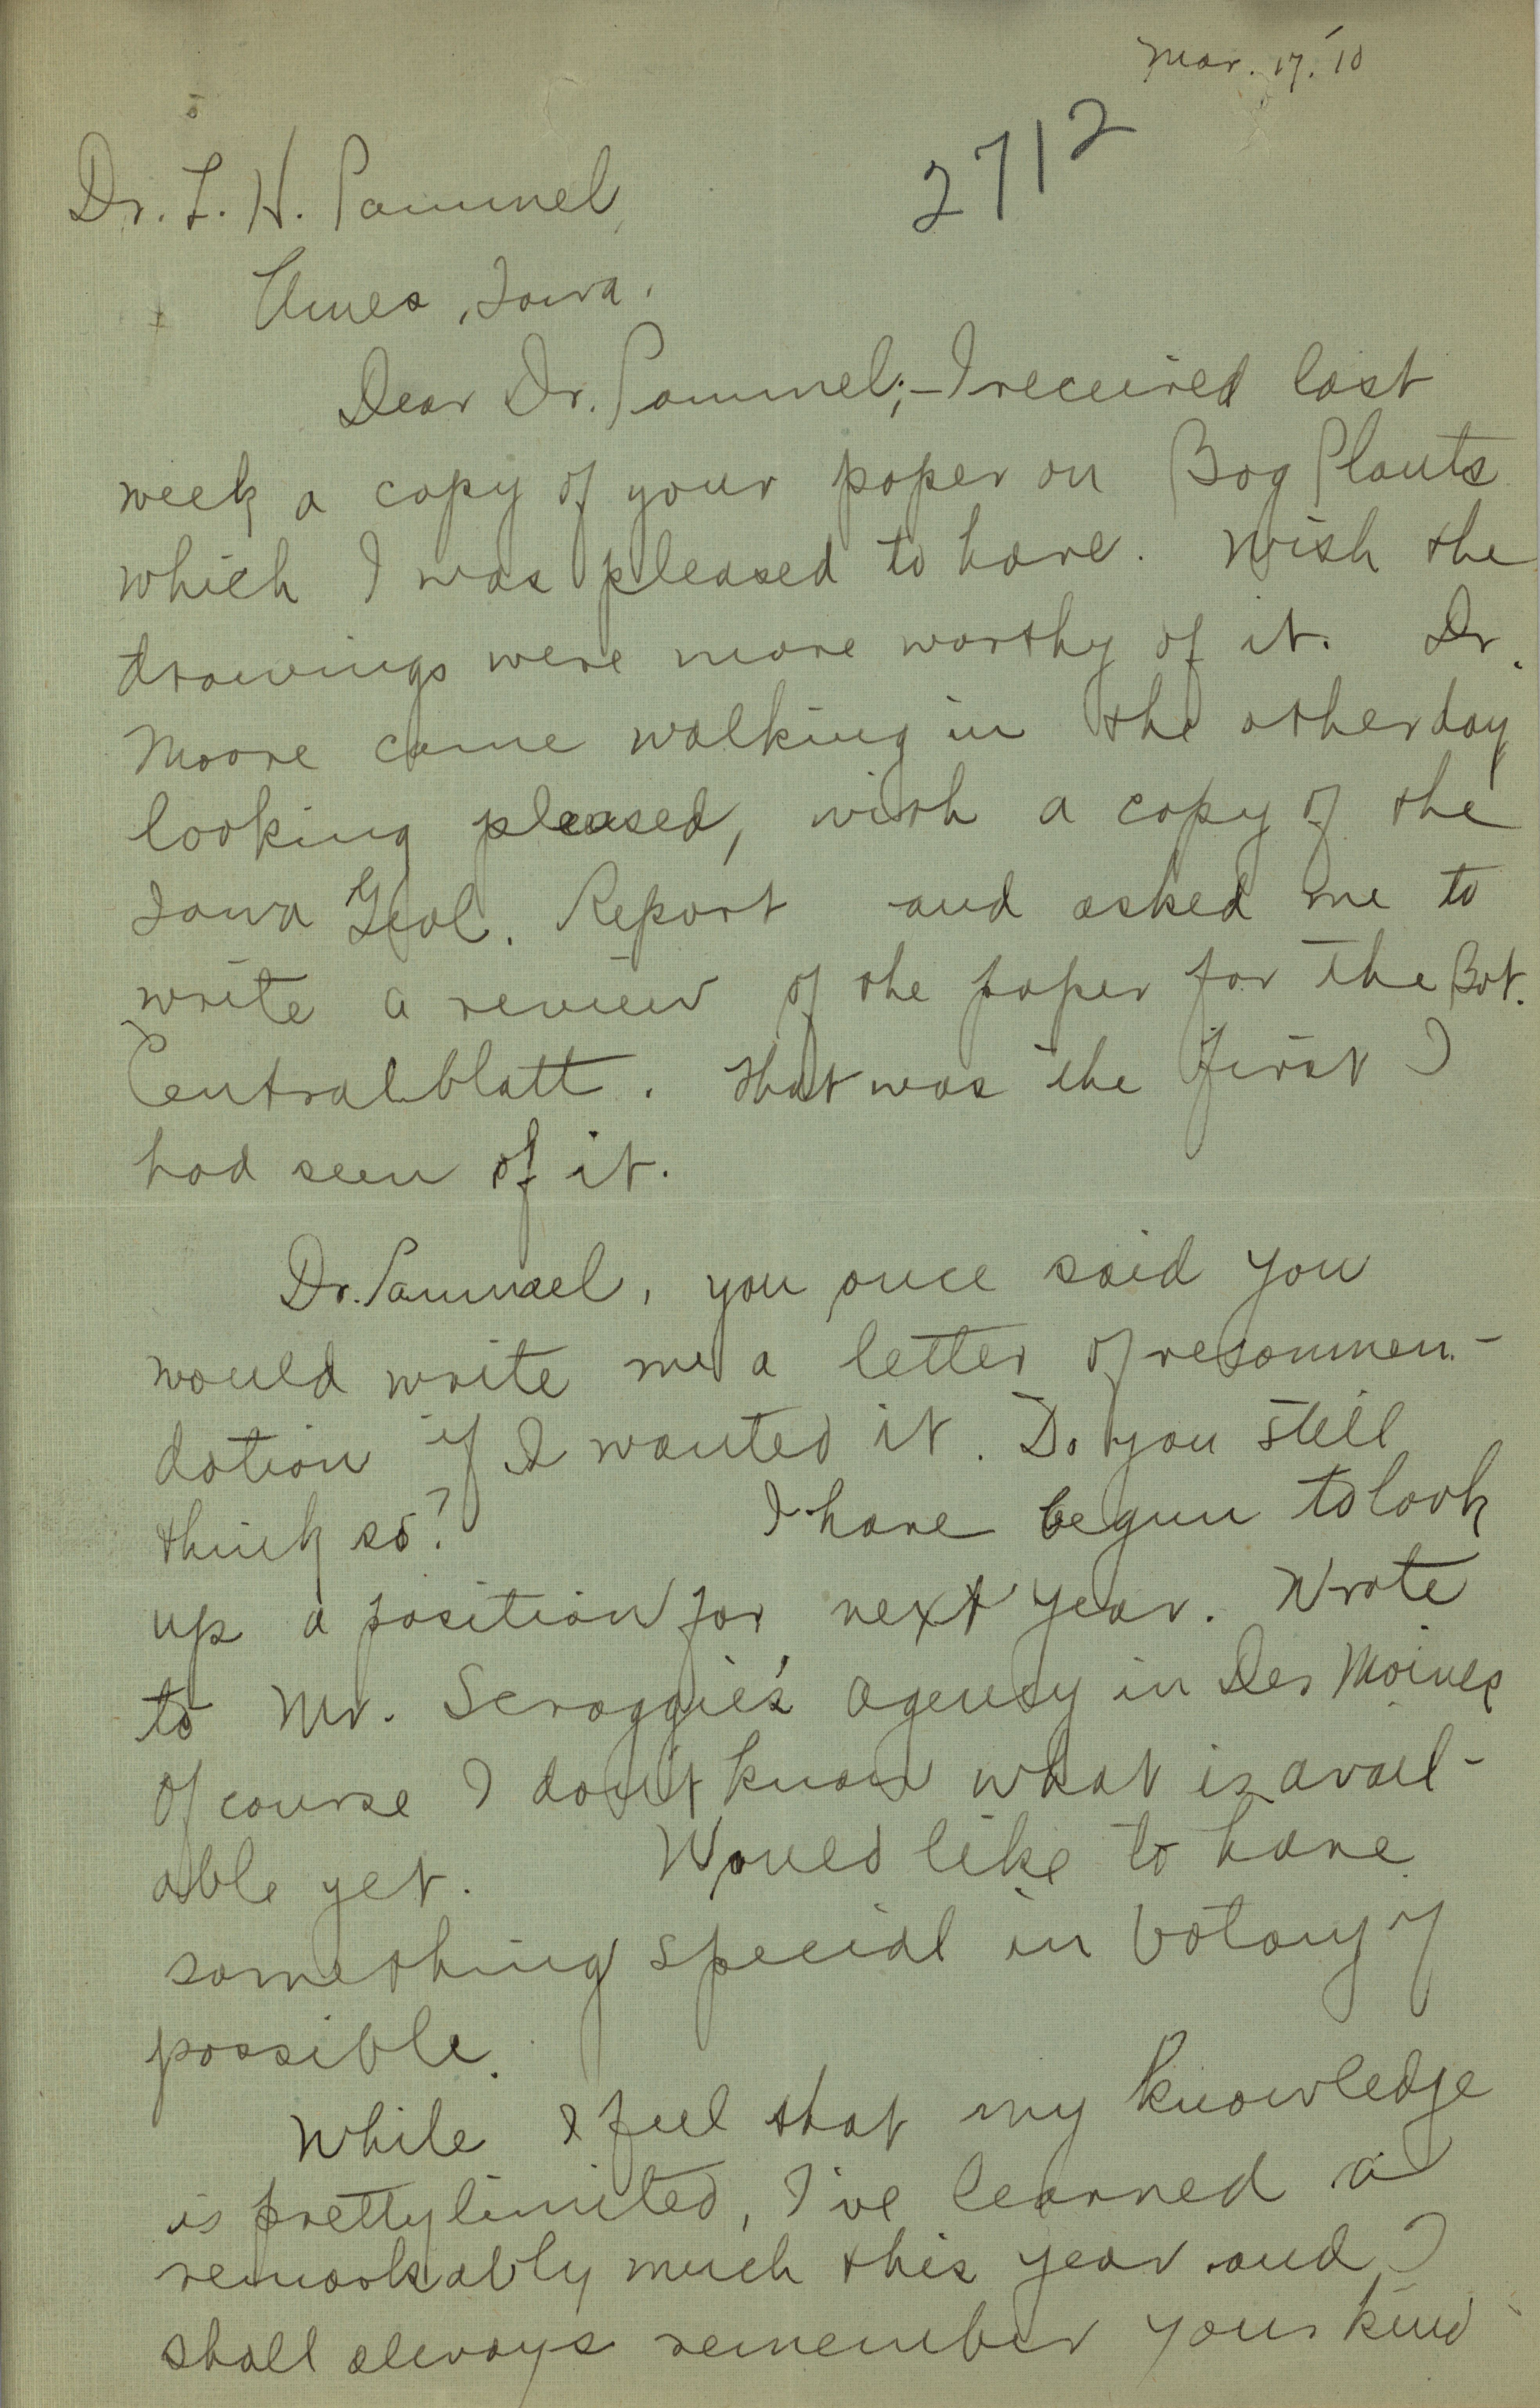 Mar. 17. '10
2712
Dr. L. H. Pammel,
Ames, Iowa.
Dear Dr. Pammel;—I received last
week a copy of your paper on Bog Plants
which I was pleased to have. Wish the
drawings were more worthy of it. Dr.
Moore came walking in the other day
looking pleased, with a copy of the
Iowa Geol. Report and asked me to
write a review of the paper for the Bot.
Centralblatt. That was the first I
had seen of it.
Dr. Pammel, you once said you
would write me a letter of recommen-
dation if I wanted it. Do you still
think so? I have begun to look
up a position for next year. Wrote
to Mr. Scroggie's agency in Des Moines
Of course I don't know what is avail-
able yet. Would like to have
something special in botany if
possible.
While I feel that my knowledge
is pretty limited, I've learned a
remarkably much this year and I
shall always remember your kind